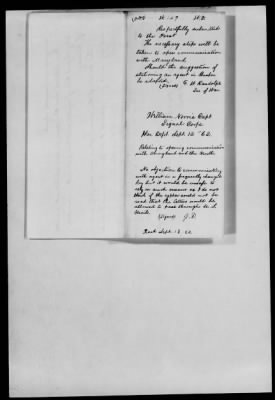 Respectfully submitted
to the Presd.
The necessary steps will be
taken to open communication
with Maryland.
Should the suggestion of
stationing an agent in
be adopted.
(Signed) G. W. Randolph
Sec of War
William Norris Capt
Signal Corps
War Dept. Sept. 12 "62.
Relating to opening communication
with Maryland and the North
No objection to communicating
with agent in a frequently changed
key but it would be unsafe to
rely on such means as I do not
think if the cypher could not be
read that the letters would be
allowed to pass through U. S.
Mails.
(Signed) J. D.
Recd Sept. 13 62